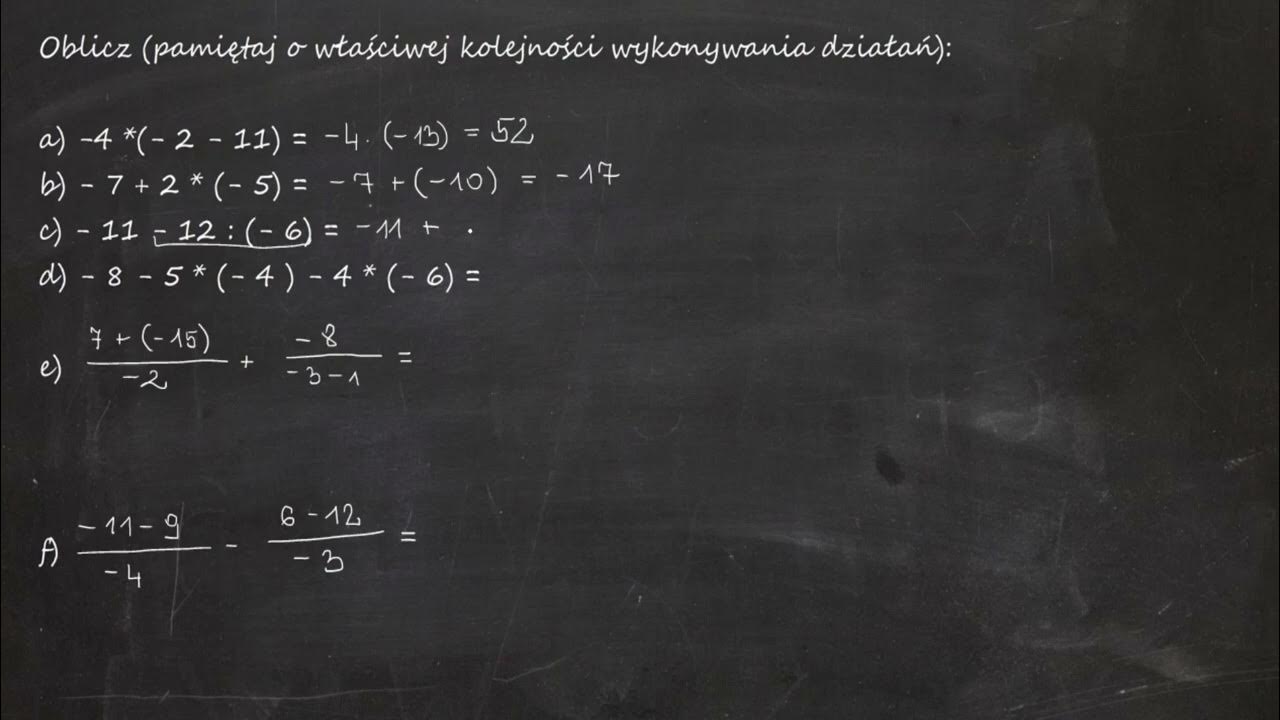 Oblicz (pamiętaj o właściwej kolejności wykonywania działań):
a) -4 *(- 2 - 11) = -4 · (-13) = 52
b) - 7 + 2 * (- 5) = -7 + (-10) = -17
c) - 11 - 12 : (- 6) = -11 + ·
d) - 8 - 5 * (- 4 ) - 4 * (- 6) =
e) \frac{7 + (-15)}{-2} + \frac{-8}{-3-1} =
f) \frac{-11-9}{-4} - \frac{6-12}{-3} =